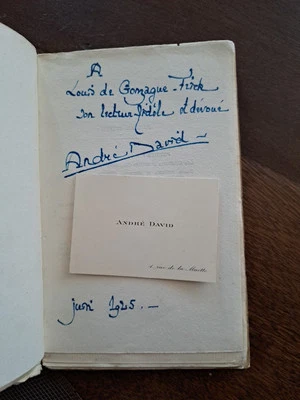 A
Louis de Gonzague-Frick
son lecteur fidèle et dévoué
André David
ANDRÉ DAVID
rue de la Muette
juin 1925.—